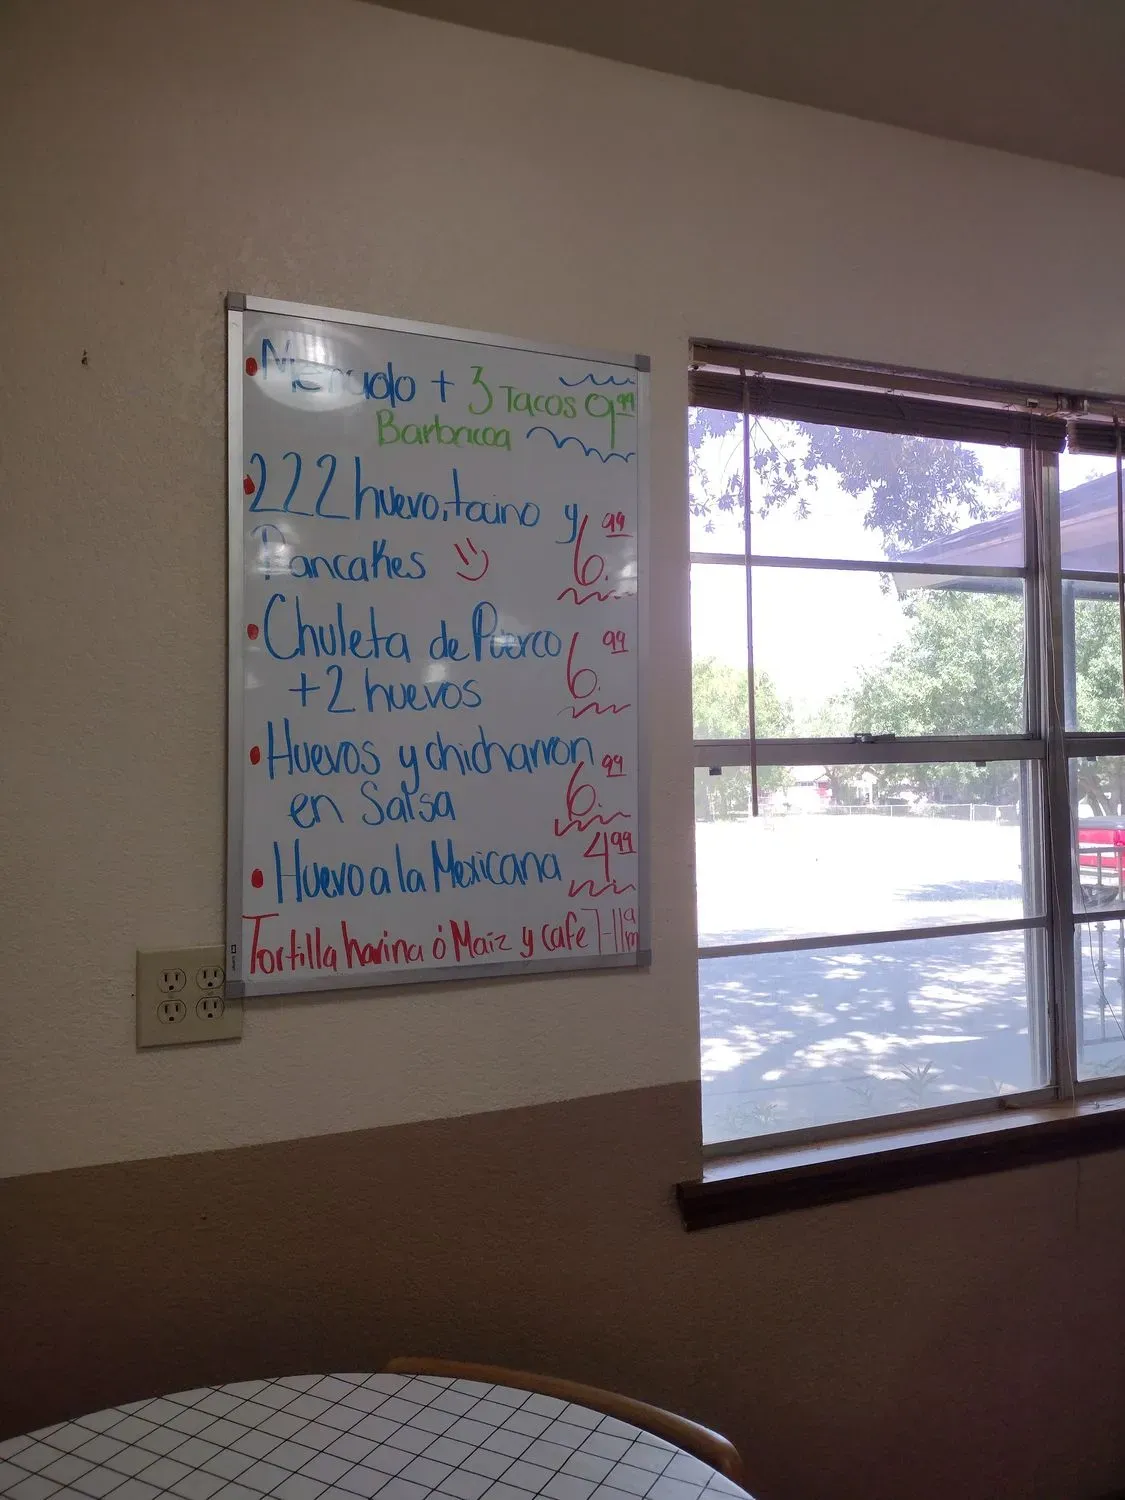 • Menudo + 3 Tacos 9.99
Barbacoa
• 222 huevo, tocino y
Pancakes 6.99
• Chuleta de Puerco 6.99
+ 2 huevos
• Huevos y chicharron 6.99
en Salsa
• Huevo a la Mexicana 4.99
Tortilla harina ó Maiz y cafe 7-11am